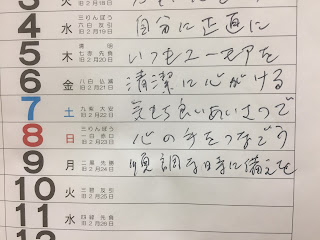 3 火 旧2月18日
4 水 三りんぼう 六白 友引 旧2月19日 自分に正直に
5 木 清明 七赤 先負 旧2月20日 いつもユーモアを
6 金 八白 仏滅 旧2月21日 清潔に心がける
7 土 九紫 大安 旧2月22日 気もち良いあいさつで
8 日 三りんぼう 一白 赤口 旧2月23日 心の手をつなごう
9 月 二黒 先勝 旧2月24日 順調な時に備えを
10 火 三碧 友引 旧2月25日
11 水 四緑 先負 旧2月26日